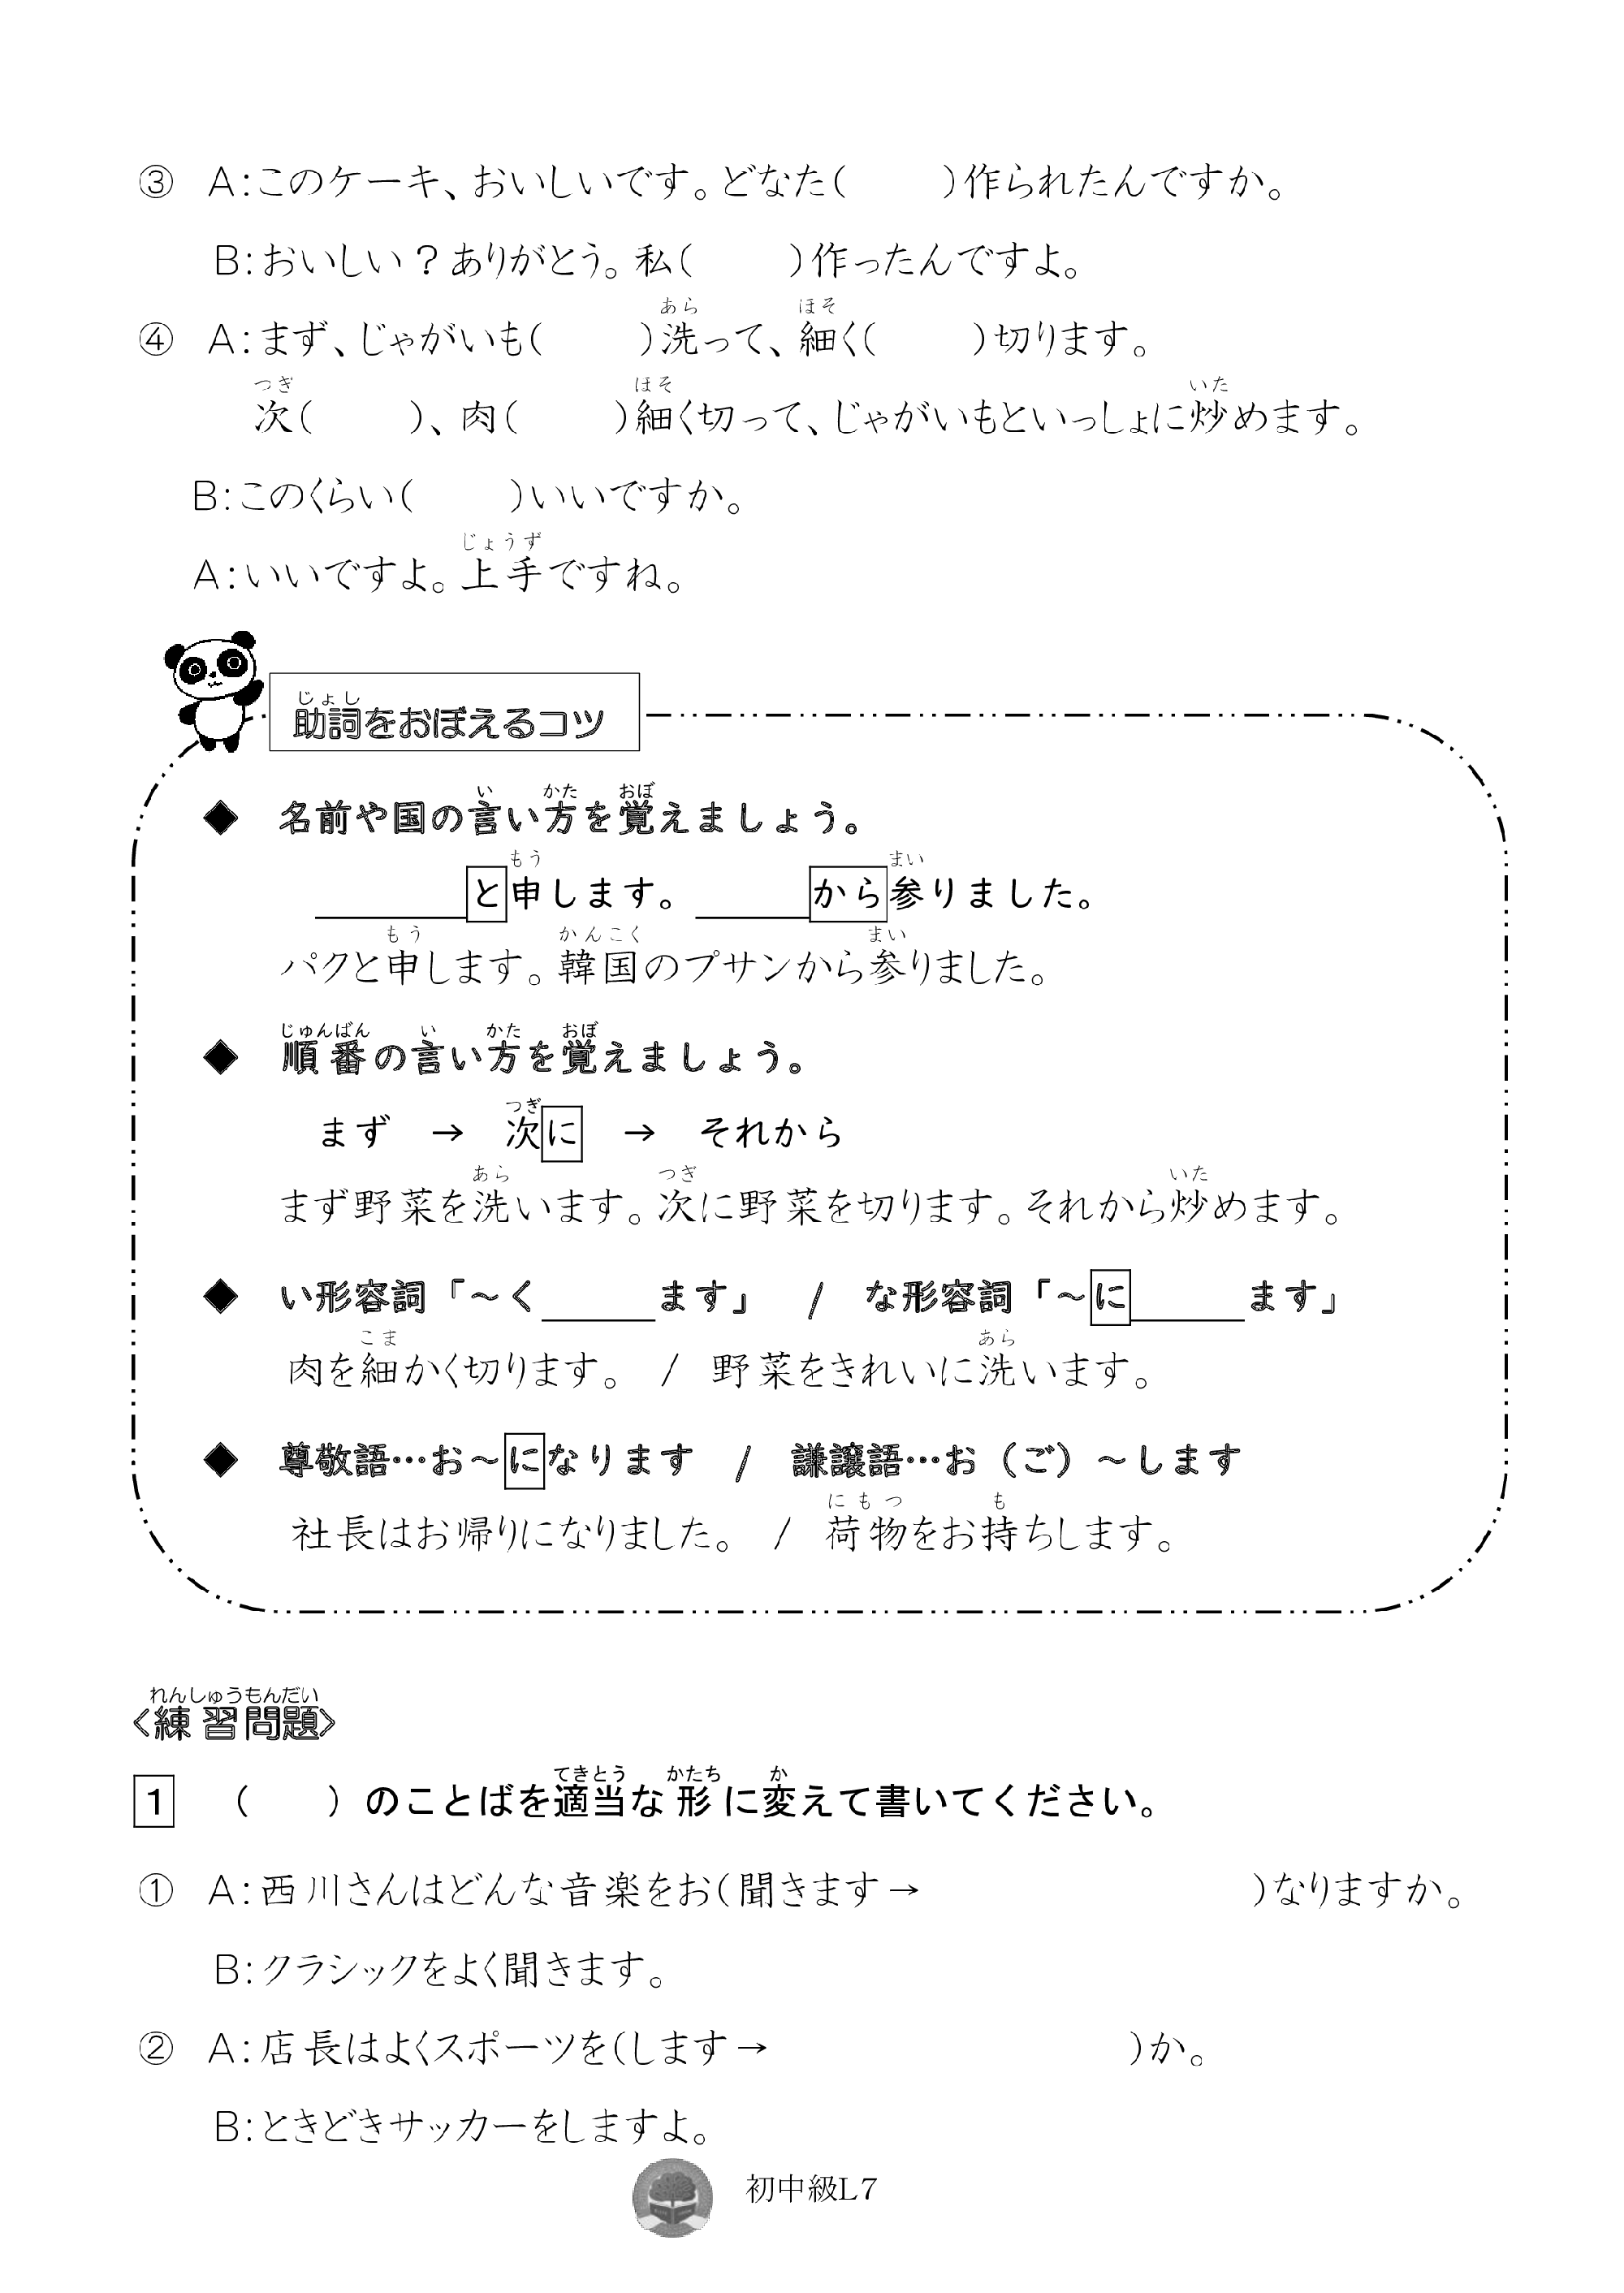 ③ A:このケーキ、おいしいです。どなた(　　)作られたんですか。
B:おいしい？ありがとう。私(　　)作ったんですよ。
あら ほそ
④ A:まず、じゃがいも(　　)洗って、細く(　　)切ります。
つぎ ほそ いた
次(　　)、肉(　　)細く切って、じゃがいもといっしょに炒めます。
B:このくらい(　　)いいですか。
じょうず
A:いいですよ。上手ですね。
じょし
助詞をおぼえるコツ
い かた おぼ
◆ 名前や国の言い方を覚えましょう。
もう まい
＿＿＿＿と申します。＿＿＿から参りました。
もう かんこく まい
パクと申します。韓国のプサンから参りました。
じゅんばん い かた おぼ
◆ 順番の言い方を覚えましょう。
つぎ
まず → 次に → それから
あら つぎ いた
まず野菜を洗います。次に野菜を切ります。それから炒めます。
◆ い形容詞「～く＿＿＿ます」 / な形容詞「～に＿＿＿ます」
こま あら
肉を細かく切ります。 / 野菜をきれいに洗います。
◆ 尊敬語…お～になります / 謙譲語…お（ご）～します
にもつ も
社長はお帰りになりました。 / 荷物をお持ちします。
れんしゅうもんだい
〈練習問題〉
てきとう かたち か
1 （　　）のことばを適当な形に変えて書いてください。
① A:西川さんはどんな音楽をお(聞きます→　　　　)なりますか。
B:クラシックをよく聞きます。
② A:店長はよくスポーツを(します→　　　　)か。
B:ときどきサッカーをしますよ。
初中級L7